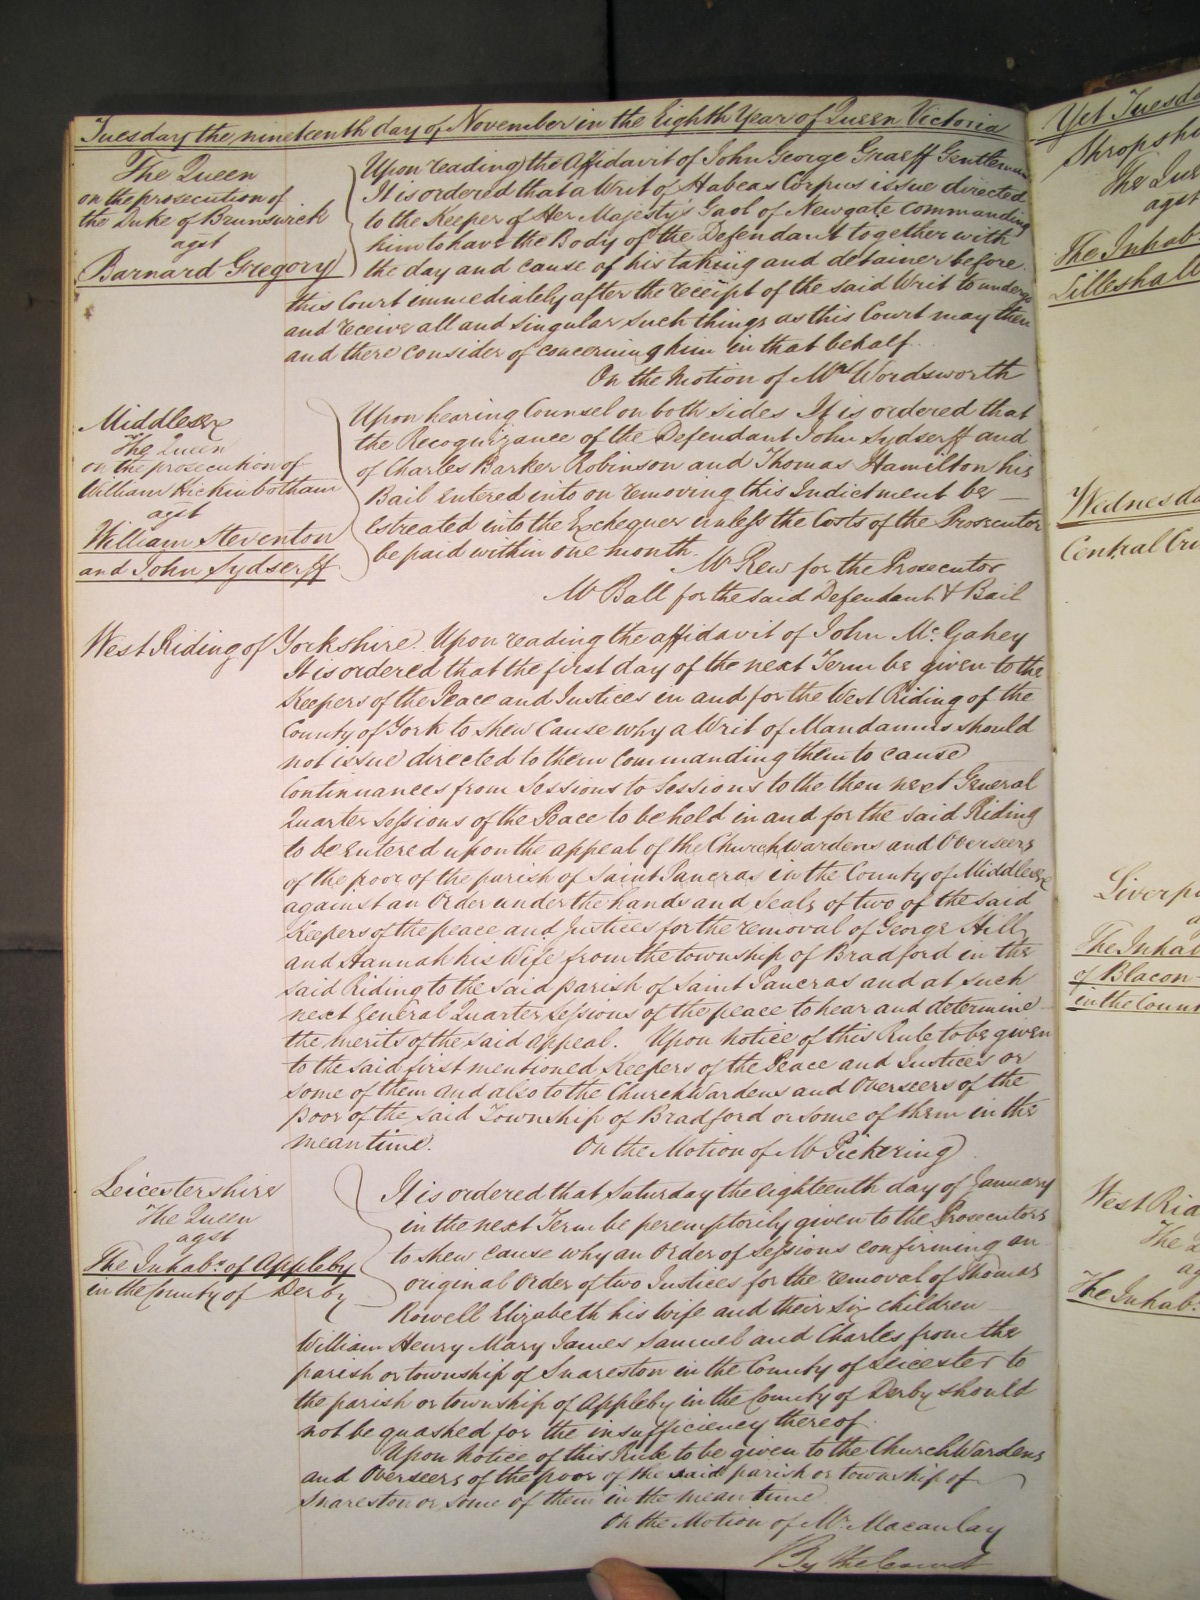 Tuesday the nineteenth day of November in the Eighth Year of Queen Victoria
The Queen
on the prosecution of
the Duke of Brunswick
agst
Barnard Gregory
Upon reading the Affidavit of John George Graeff Gentleman
It is ordered that a Writ of Habeas Corpus issue directed
to the Keeper of Her Majesty's Gaol of Newgate commanding
him to have the Body of the Defendant together with
the day and cause of his taking and detainer before
this Court immediately after the receipt of the said Writ to undergo
and receive all and singular such things as this Court may then
and there consider of concerning him in that behalf.
On the Motion of Mr Wordsworth
Middlesex
The Queen
on the prosecution of
William Hickinbotham
agst
William Steventon
and John Sydserff
Upon hearing Counsel on both sides It is ordered that
the Recognizance of the Defendant John Sydserff and
of Charles Barker Robinson and Thomas Hamilton his
Bail entered into on removing this Indictment be
Estreated into the Exchequer unless the Costs of the Prosecutor
be paid within one month.
Mr Rew for the Prosecutor
Mr Ball for the said Defendant & Bail
West Riding of Yorkshire. Upon reading the affidavit of John Mc Gahey
It is ordered that the first day of the next Term be given to the
Keepers of the Peace and Justices in and for the West Riding of the
County of York to shew Cause why a Writ of Mandamus should
not issue directed to them commanding them to cause
Continuances from Sessions to Sessions to the then next General
Quarter Sessions of the Peace to be held in and for the said Riding
to be entered upon the appeal of the Churchwardens and Overseers
of the poor of the parish of Saint Pancras in the County of Middlesex
against an Order under the hands and Seals of two of the said
Keepers of the peace and Justices for the removal of George Hill
and Hannah his Wife from the township of Bradford in the
said Riding to the said parish of Saint Pancras and at such
next General Quarter Sessions of the peace to hear and determine
the merits of the said appeal. Upon notice of this Rule to be given
to the said first mentioned Keepers of the Peace and Justices or
some of them and also to the Church Wardens and Overseers of the
poor of the said Township of Bradford or some of them in the
mean time.
On the Motion of Mr Pickering
Leicestershire
The Queen
agst
The Inhabs. of Appleby
in the County of Derby
It is ordered that Saturday the eighteenth day of January
in the next Term be peremptorily given to the Prosecutors
to shew cause why an Order of Sessions confirming an
original Order of two Justices for the removal of Thomas
Rowell Elizabeth his wife and their six children
William Henry Mary James Samuel and Charles from the
parish or township of Snareston in the County of Leicester to
the parish or township of Appleby in the County of Derby should
not be quashed for the insufficiency thereof.
Upon notice of this Rule to be given to the Church Wardens
and Overseers of the poor of the said parish or township of
Snareston or some of them in the mean time
On the Motion of Mr. Macaulay
By the Court
Yet Tuesda
Shropsh
The Que
agst
The Inhab
Lilleshall
Wednesda
Central Cri
Liverp
The Inhab
of Blacon
in the Coun
West Rid
The
ag
The Inhab